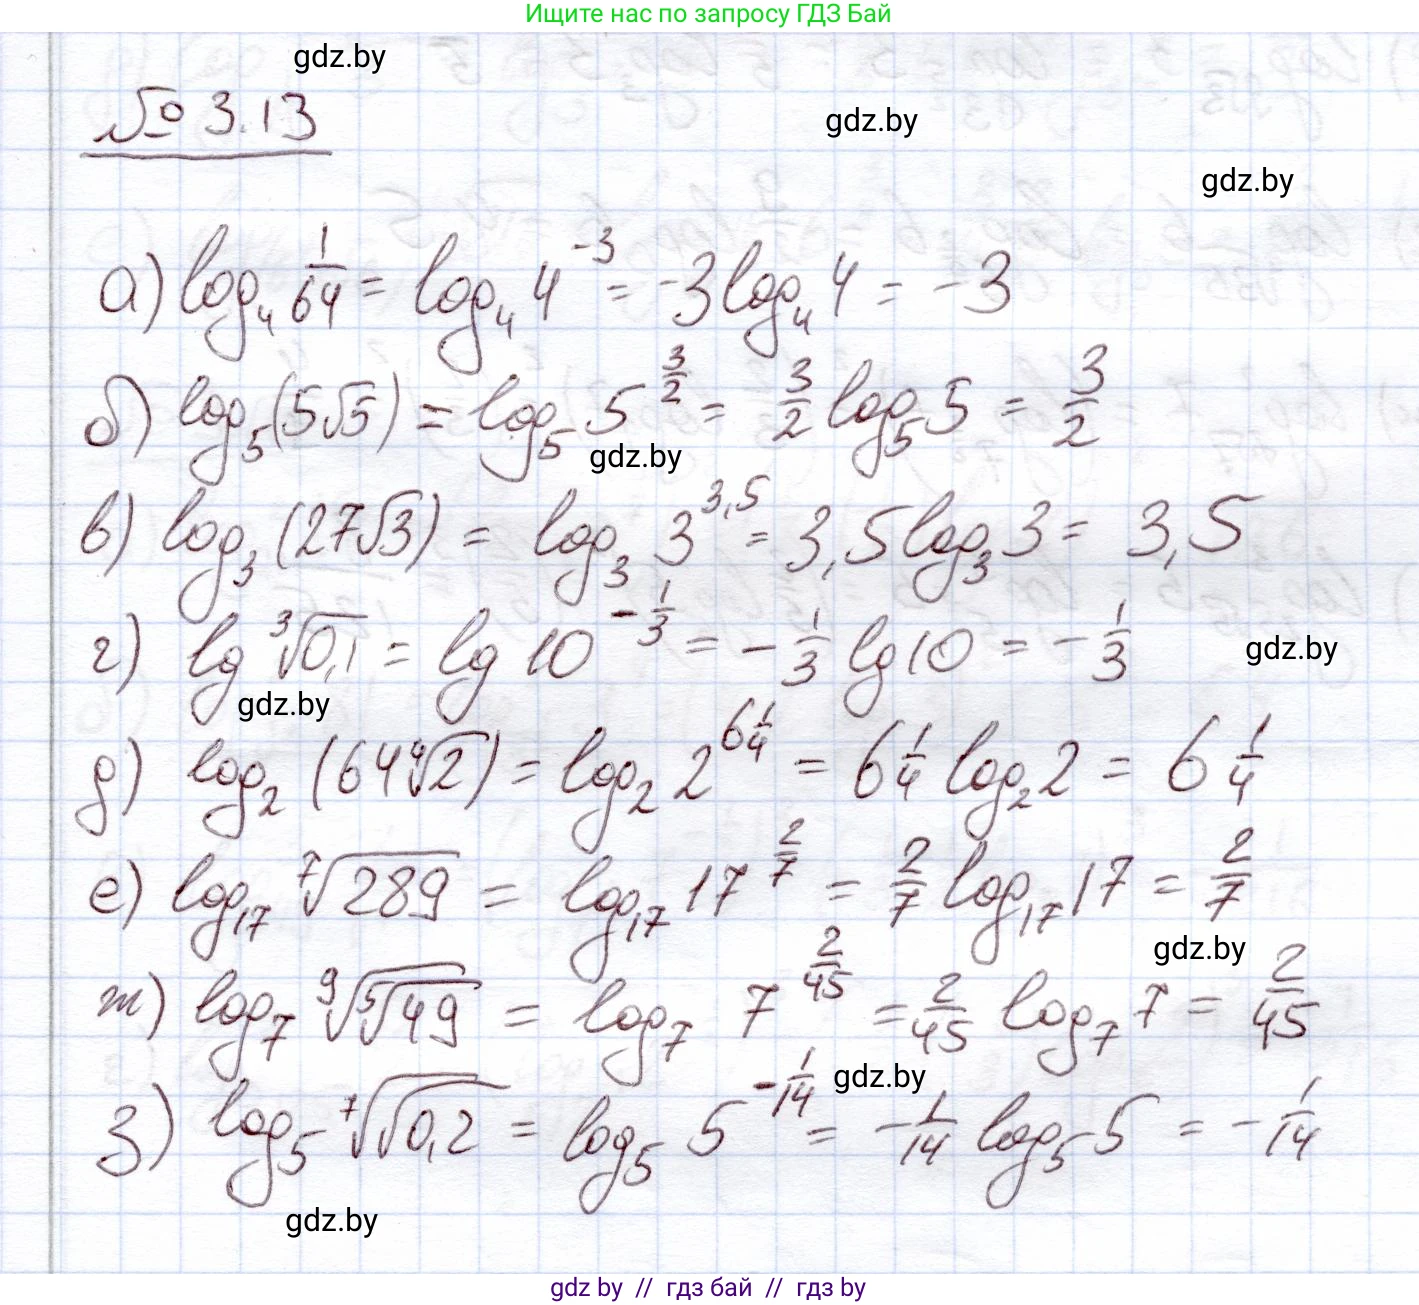 Ищите нас по запросу ГДЗ Бай
gdz.by
№ 3.13
gdz.by
gdz.by
а) log₄ 1/64 = log₄ 4⁻³ = -3 log₄ 4 = -3
б) log₅(5√5) = log₅ 5^(3/2) = 3/2 log₅ 5 = 3/2
gdz.by
в) log₃(27√3) = log₃ 3^(3,5) = 3,5 log₃ 3 = 3,5
г) lg ³√0,1 = lg 10^(-1/3) = -1/3 lg 10 = -1/3
gdz.by
gdz.by
д) log₂(64 ⁴√2) = log₂ 2^(6 1/4) = 6 1/4 log₂ 2 = 6 1/4
е) log₁₇ ⁷√289 = log₁₇ 17^(2/7) = 2/7 log₁₇ 17 = 2/7
gdz.by
ж) log₇ ⁹√(⁵√49) = log₇ 7^(2/45) = 2/45 log₇ 7 = 2/45
gdz.by
з) log₅ ⁷√(√0,2) = log₅ 5^(-1/14) = -1/14 log₅ 5 = -1/14
gdz.by
gdz by // гдз бай // гдз by